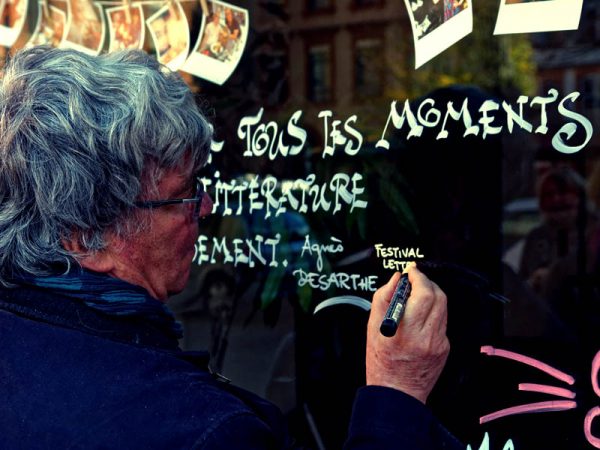 TOUS LES MOMENTS
LITTÉRATURE
DEMENT. Agnès
DESARTHE
FESTIVAL
LETTR